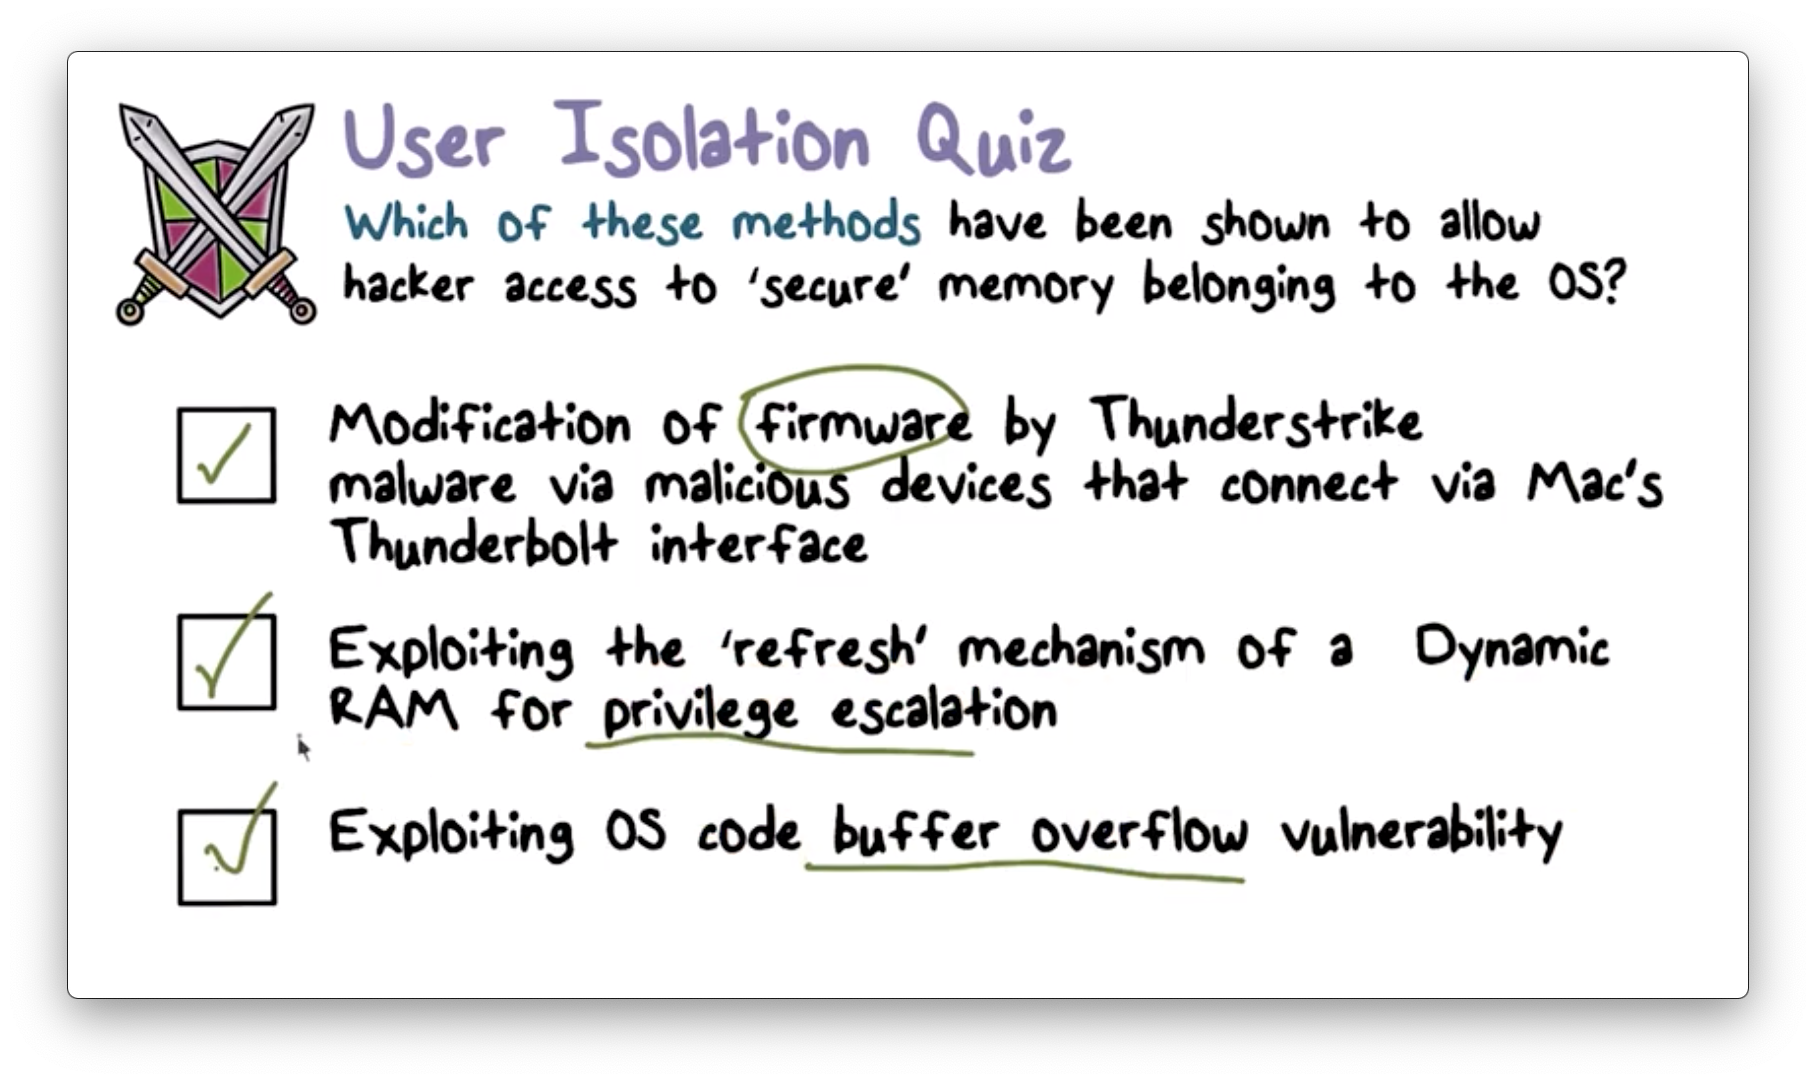 User Isolation Quiz
Which of these methods have been shown to allow
hacker access to 'secure' memory belonging to the OS?
Modification of firmware by Thunderstrike
malware via malicious devices that connect via Mac's
Thunderbolt interface
Exploiting the 'refresh' mechanism of a Dynamic
RAM for privilege escalation
Exploiting OS code buffer overflow vulnerability